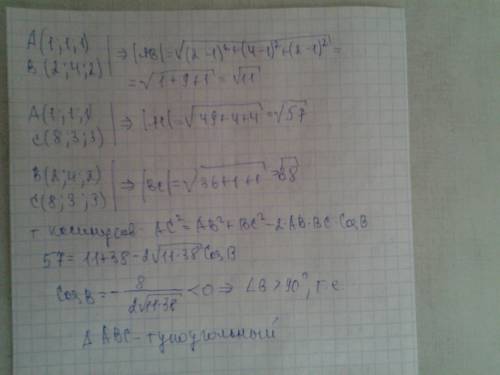 A(1;1;1)
B(2;4;2) ⇒ |AB|=√((2-1)²+(4-1)²+(2-1)²)=
=√(1+9+1)=√11
A(1;1;1)
C(8;3;3) ⇒ |AC|=√(49+4+4)=√57
B(2;4;2)
C(8;3;3) ⇒ |BC|=√(36+1+1)=√38
т косинусов AC²=AB²+BC²-2·AB·BC CosB
57=11+38-2√(11·38) CosB
CosB=-8/(2√(11·38))<0 ⇒ ∠B>90°, т.е.
Δ ABC-тупоугольный